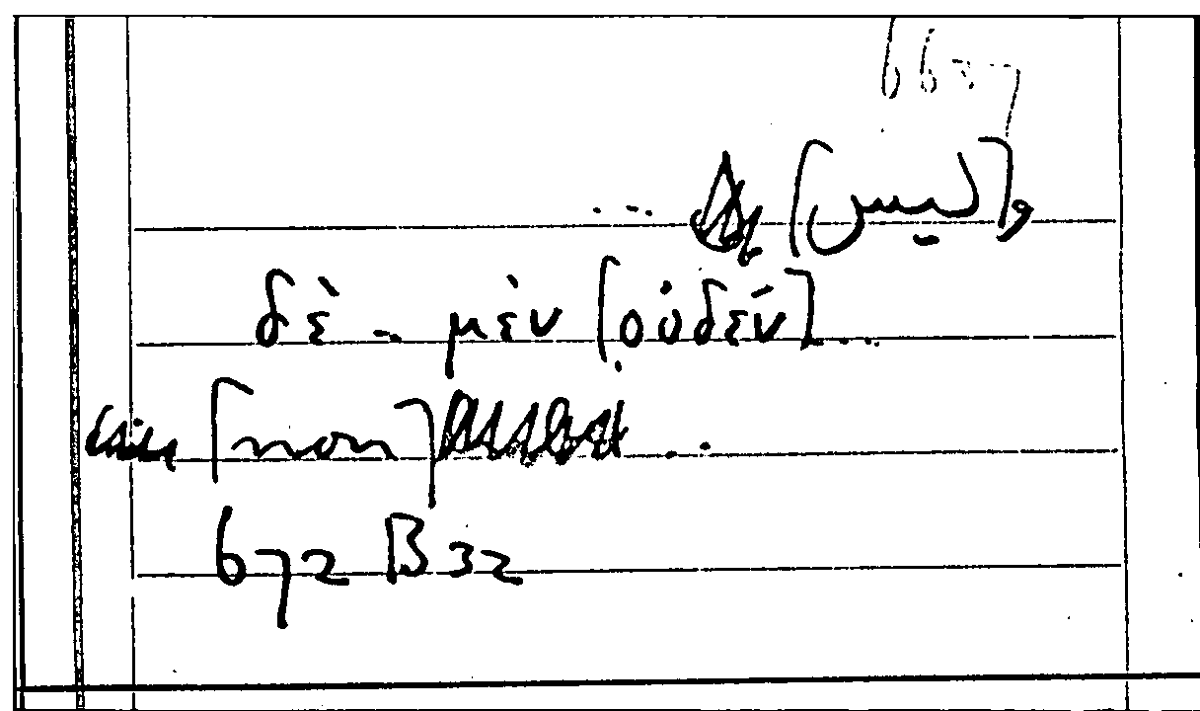 و [ليس] ...
δὲ .. μὲν [οὐδέν] ...
[non] ..
672 B 32